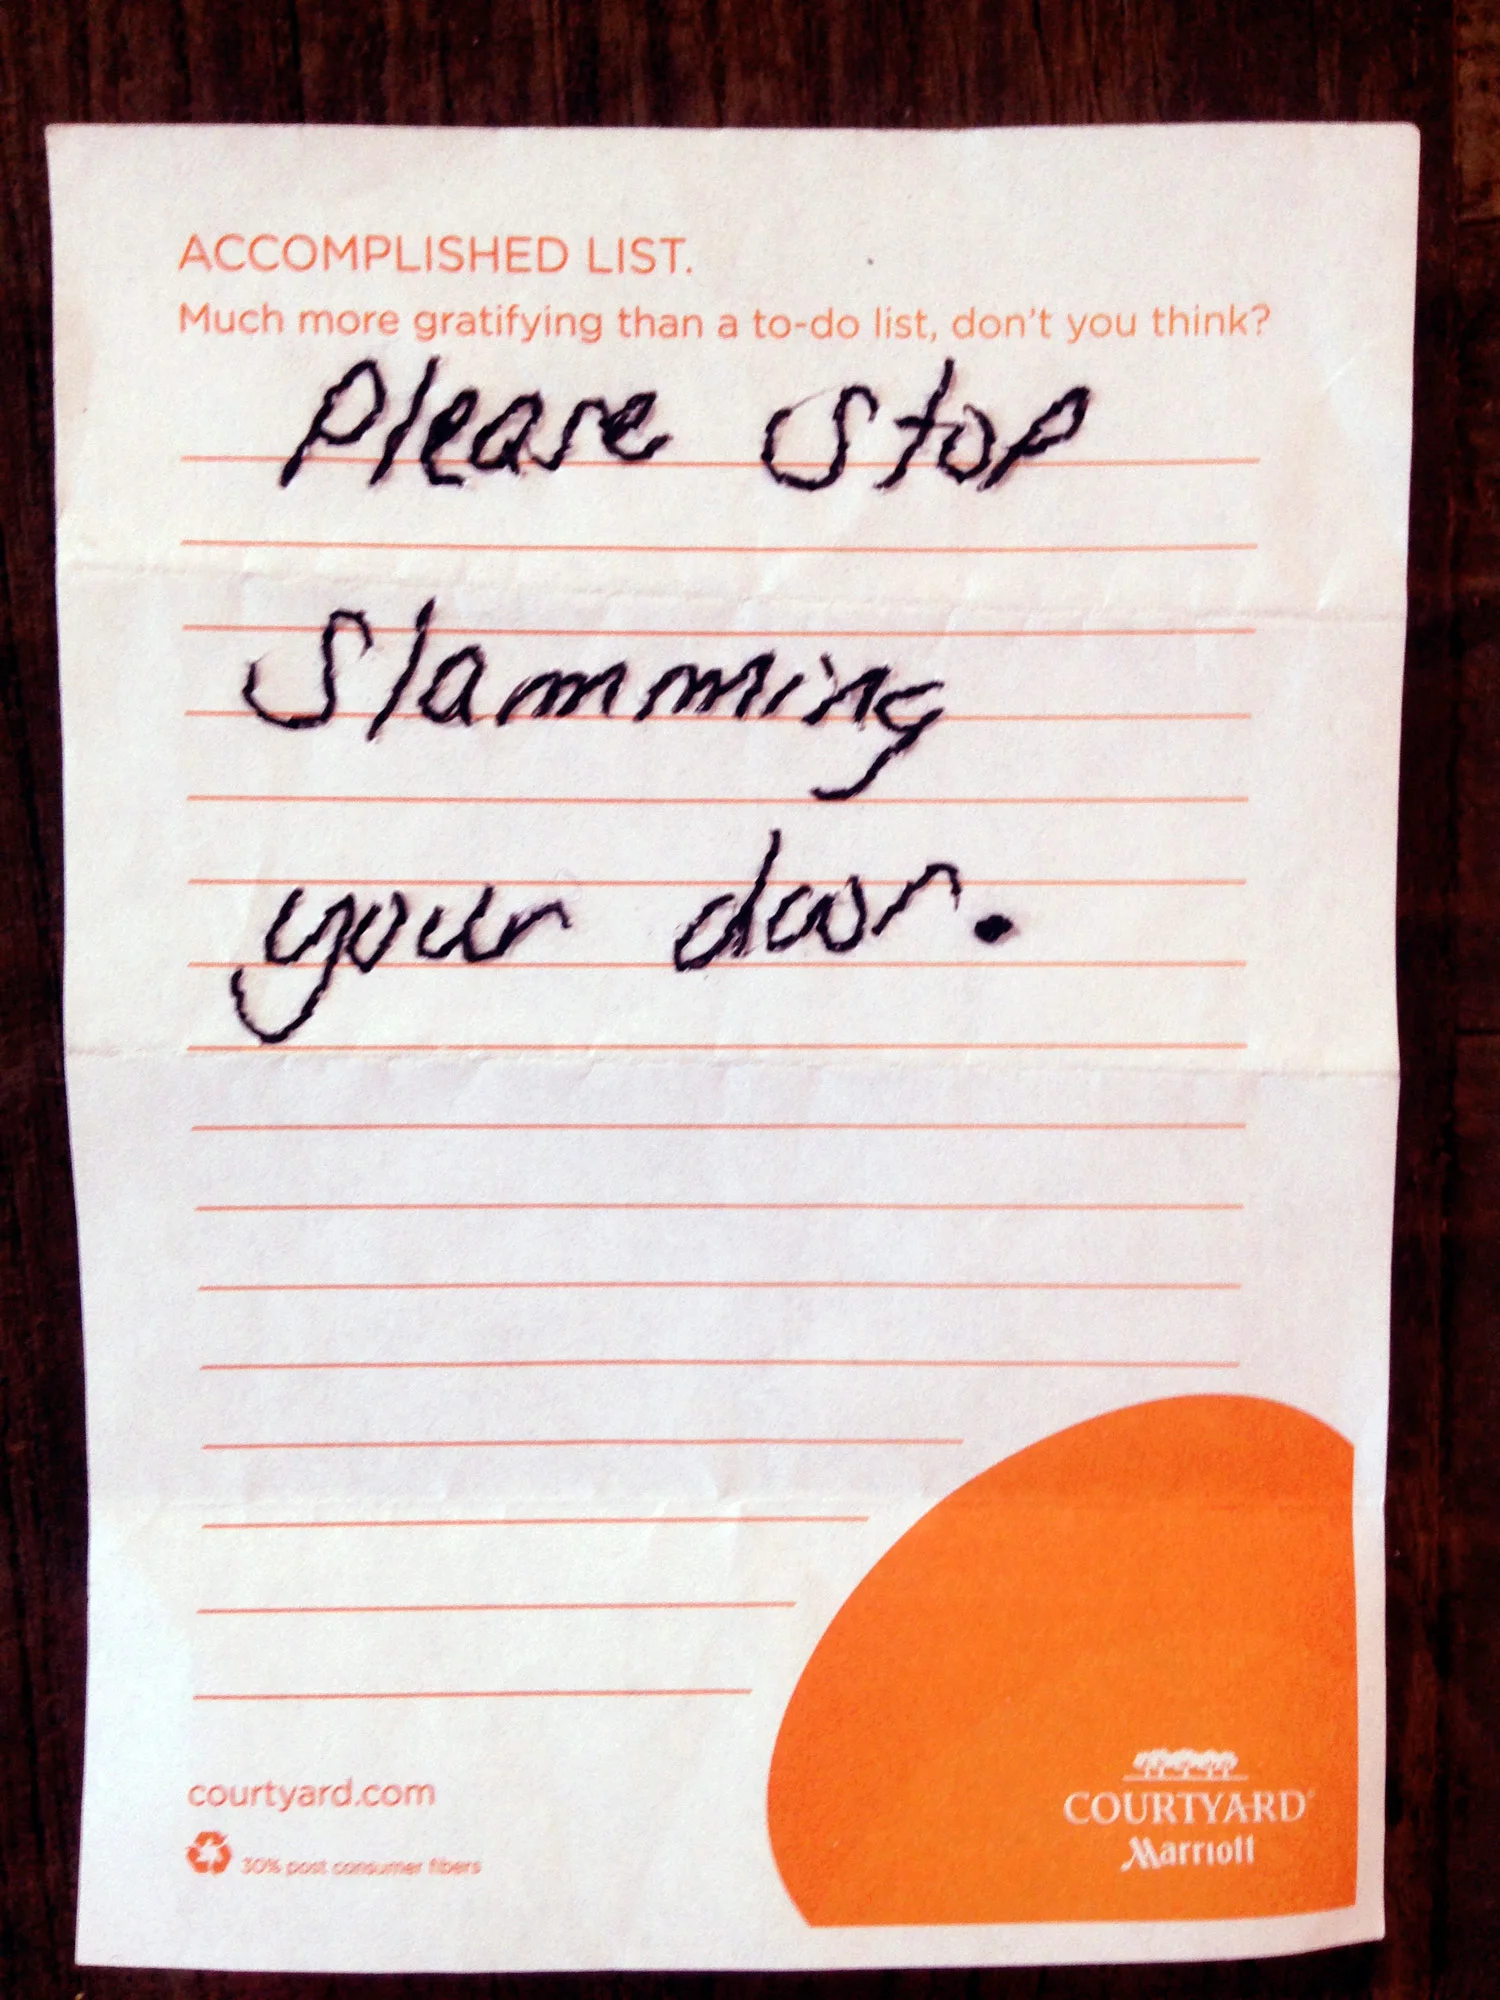 ACCOMPLISHED LIST.
Much more gratifying than a to-do list, don't you think?
Please Stop
Slamming
your door.
courtyard.com
30% post consumer fibers
COURTYARD®
Marriott